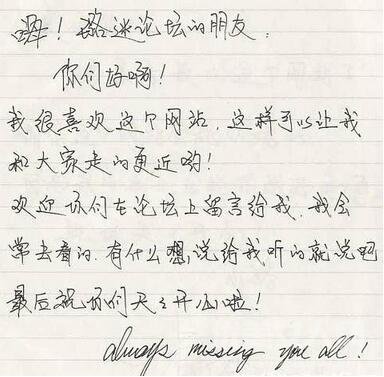 嗨！路迷论坛的朋友：
你们好啊！
我很喜欢这个网站，这样可以让我
和大家走的更近哟！
欢迎你们在论坛上留言给我，我会
常去看的．有什么想，说给我听的就说吧
最后祝你们天天开心啦！
always missing you all！